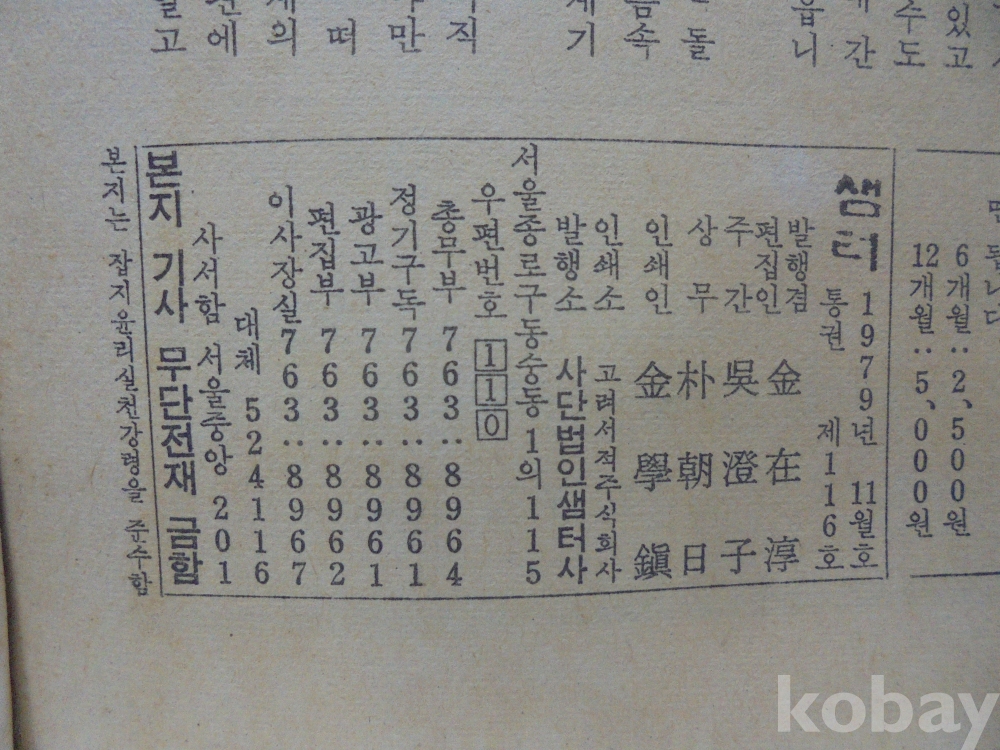 있고
수도
간
읍니
돌
음속
계기
직
만
떠
계의
에
고
6개월‥2,500원
12개월‥5,000원
샘터
1979년 11월호
통권 제116호
발행겸
편집인 金在淳
주간 吳澄子
상무 朴朝日
인쇄인 金學鎭
인쇄소 고려서적주식회사
발행소 사단법인샘터사
서울종로구동숭동1의115
우편번호 110
총무부 763‥8964
정기구독 763‥8961
광고부 763‥8961
편집부 763‥8962
이사장실 763‥8967
대체 524116
사서함 서울중앙 201
본지 기사 무단전재 금함
본지는 잡지윤리실천강령을 준수함
kobay